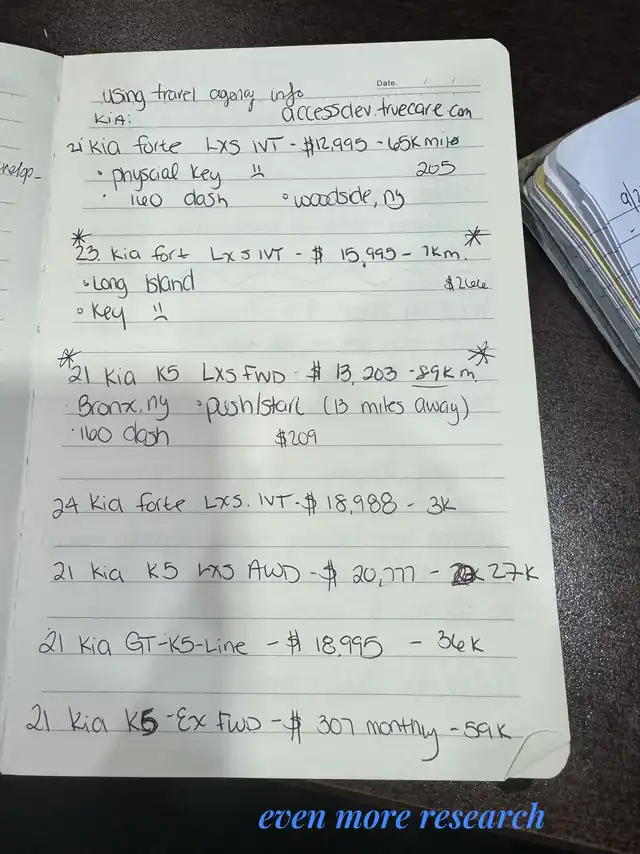 using travel agency info
Date. / /
KiA: accessdev.truecare.com
21' Kia forte LXS IVT - $12,995 - 65K mile
• physcial key :( 205
• 160 dash • woodside, ny
* 23. Kia fort LXS IVT - $ 15,995 - 7Km. *
• Long Island $266
• Key :(
* 21 Kia K5 LXS FWD - $ 13,203 - 89K m. *
Bronx, ny • push/start (13 miles away)
• 160 dash $209
24 Kia forte LXS. IVT - $ 18,988 - 3K
21 Kia K5 LXS AWD - $ 20,777 - 27K
21 Kia GT-K5-Line - $ 18,995 - 36K
21 Kia K5 - EX FWD - $ 307 monthly - 59K
even more research